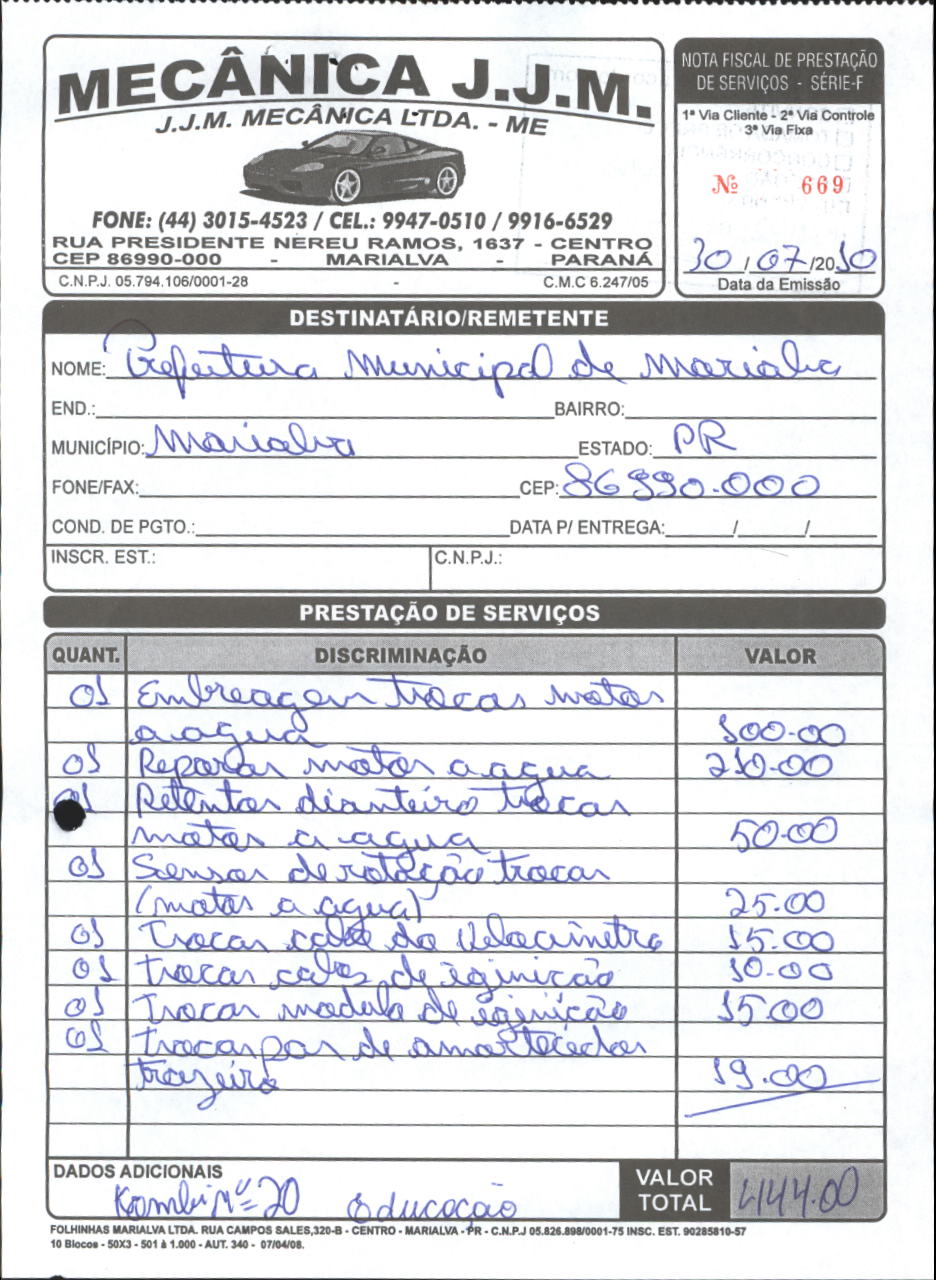 MECÂNICA J.J.M.
J.J.M. MECÂNICA LTDA. - ME
FONE: (44) 3015-4523 / CEL.: 9947-0510 / 9916-6529
RUA PRESIDENTE NEREU RAMOS, 1637 - CENTRO
CEP 86990-000 - MARIALVA - PARANÁ
C.N.P.J. 05.794.106/0001-28 - C.M.C 6.247/05
NOTA FISCAL DE PRESTAÇÃO
DE SERVIÇOS - SÉRIE-F
1ª Via Cliente - 2ª Via Controle
3ª Via Fixa
Nº 669
30 / 07 /2010
Data da Emissão
DESTINATÁRIO/REMETENTE
NOME: Prefeitura Municipal de Marialva
END.: BAIRRO:
MUNICÍPIO: Marialva ESTADO: PR
FONE/FAX: CEP: 86990-000
COND. DE PGTO.: DATA P/ ENTREGA: / /
INSCR. EST.: C.N.P.J.:
PRESTAÇÃO DE SERVIÇOS
QUANT. DISCRIMINAÇÃO VALOR
01 Embreagem trocar motor
a agua 100.00
01 Reparar motor a agua 210.00
01 Retentor dianteiro trocar
motor a agua 50.00
01 Sensor de rotação trocar
(motor a agua) 25.00
01 Trocar cabo do Velocimetro 15.00
01 Trocar cabos de iginição 10.00
01 Trocar modulo de iginição 15.00
01 Trocar par de amortecedor
trazeiro 19.00
DADOS ADICIONAIS
Kombi Nº 20 Educação
VALOR TOTAL 444.00
FOLHINHAS MARIALVA LTDA. RUA CAMPOS SALES,320-B - CENTRO - MARIALVA - PR - C.N.P.J 05.826.898/0001-75 INSC. EST. 90285810-57
10 Blocos - 50X3 - 501 à 1.000 - AUT. 340 - 07/04/08.